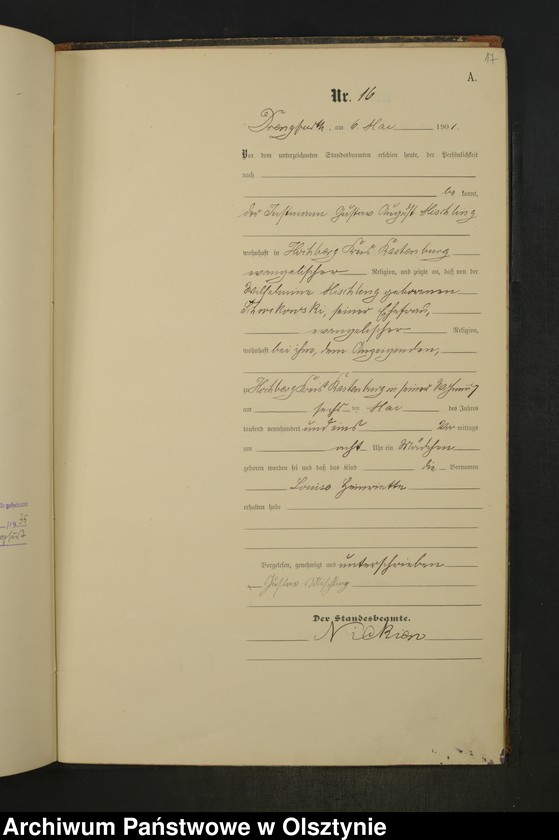 17
A.
Nr. 16
Drengfurth, am 6. Mai 1901.
Vor dem unterzeichneten Standesbeamten erschien heute, der Persönlichkeit
nach
be kannt,
der Instmann Gustav August Mischling
wohnhaft in Hochberg Kreis Rastenburg
evangelischer Religion, und zeigte an, daß von der
Wilhelmine Mischling geborenen
seiner Ehefrau,
evangelischer Religion,
wohnhaft bei ihm, dem Anzeigenden,
zu Hochberg Kreis Rastenburg in seiner Wohnung
am sechsten Mai des Jahres
tausend neunhundert und eins Vor mittags
um acht Uhr ein Mädchen
geboren worden sei und daß das Kind die Vornamen
Louise Henriette
erhalten habe
Vorgelesen, genehmigt und unterschrieben
Gustav Mischling
Der Standesbeamte.
Nickien
Archiwum Państwowe w Olsztynie